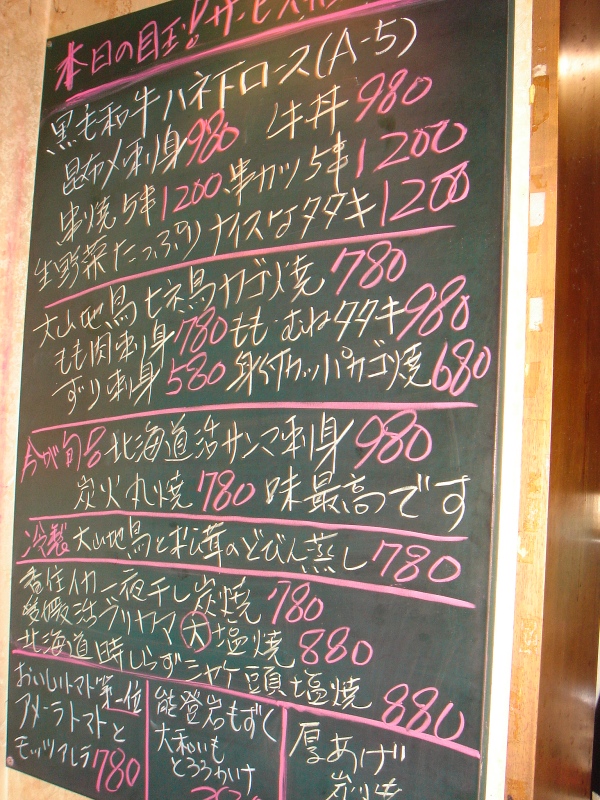 本日の目玉!サービス
黒毛和牛ハネ下ロース(A-5)
昆布〆刺身980 牛丼980
串焼5串1200 串カツ5串1200
生野菜たっぷりナイスなタタキ1200
大山地鳥七ネ鳥カゴ焼780
もも肉刺身780 もも・むねタタキ980
ずり刺身580 身付カッパカゴ焼680
今が旬!! 北海道活サンマ刺身980
炭火丸焼780 味最高です
冷製 大山地鳥と松茸のどびん蒸し780
香住イカ一夜干し炭焼780
愛媛活ブリカマ大塩焼880
北海道時しらずシャケ頭塩焼880
おいしいトマト第一位
アメーラトマトと
モッツアレラ780
能登岩もずく
大和いも
とろろかけ
厚あげ
炭焼